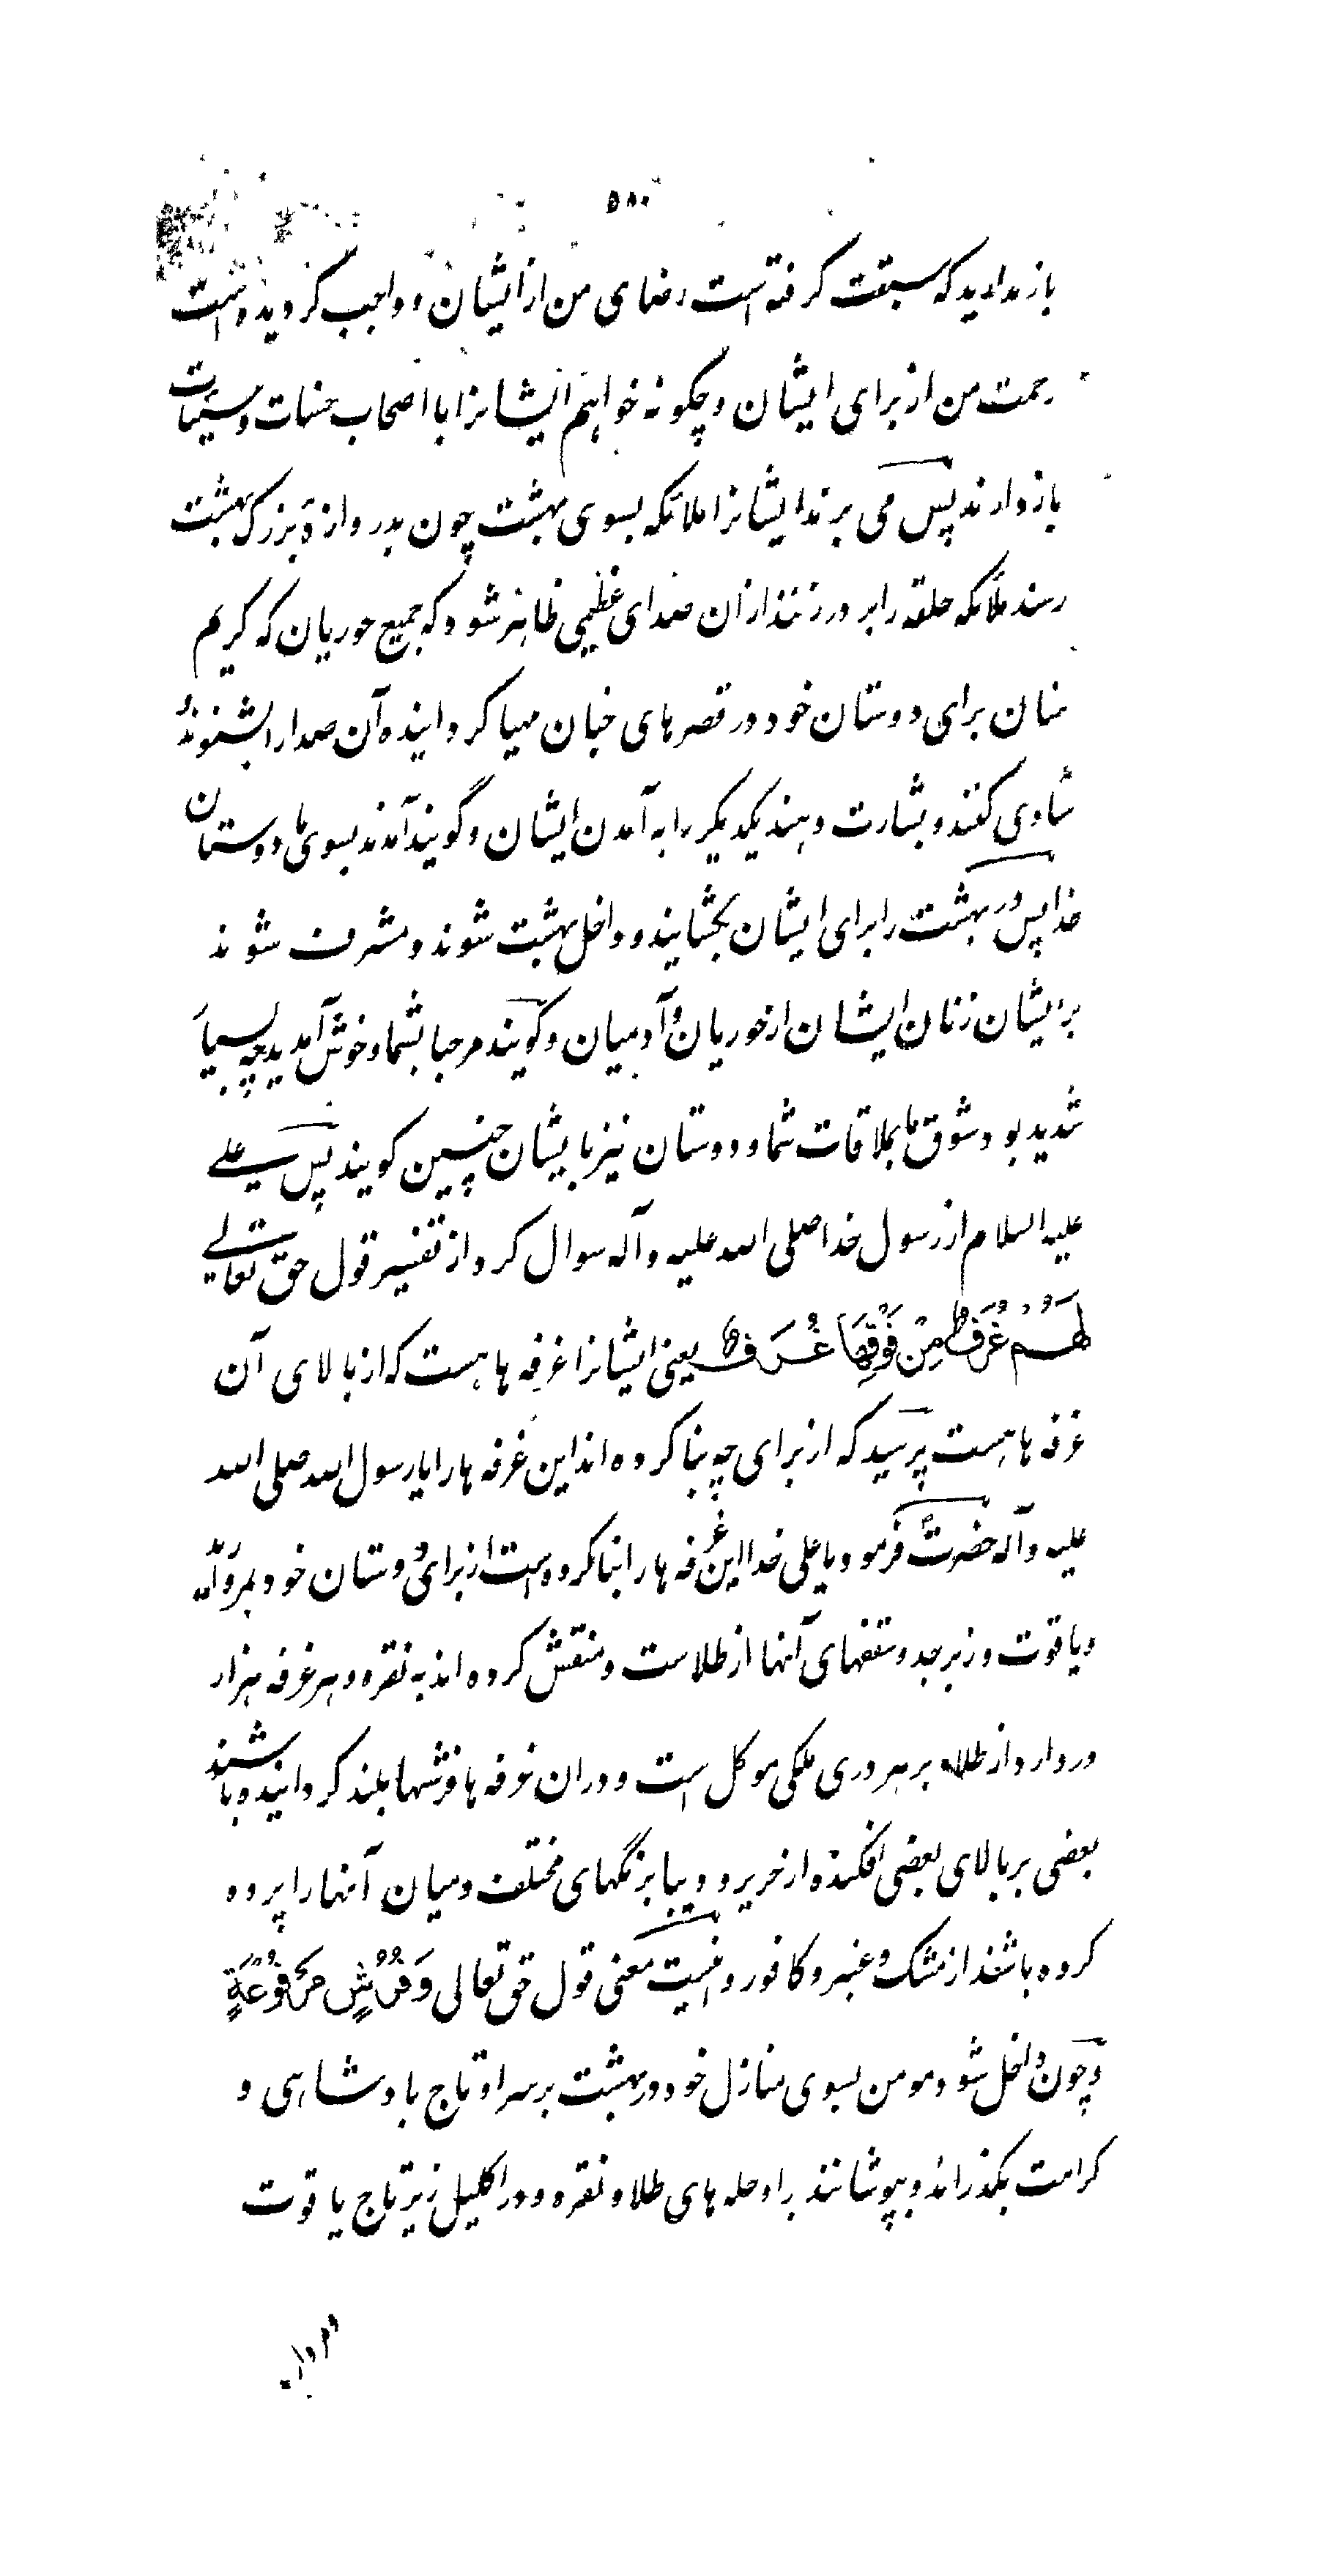 ۵۸۰
بازمدارید که سبقت گرفته است رضای من ازایشان و واجب گردیده است
رحمت من از برای ایشان و چگونه خواهم ایشانرا با اصحاب حسنات و سیئات
بازدارند پس می برند ایشانرا ملائکه بسوی بهشت چون بدروازهٔ بزرک بهشت
رسند ملائکه حلقه را بر در زنند ازان صدای عظیمی ظاهر شود که جمیع حوریان که کریم
منان برای دوستان خود در قصرهای جنان مهیا کردانیده آن صدا را بشنوند و
شادی کنند و بشارت دهند یکدیکر را به آمدن ایشان و گویند آمدند بسوی ما دوستان
خدا پس در بهشت را برای ایشان بکشایند و داخل بهشت شوند و مشرف شوند
برایشان زنان ایشان از حوریان و آدمیان و کویند مرحبا بشما و خوش آمدید چه بسیار
شدید بود شوق ما بملاقات شما و دوستان نیز بایشان چنین کویند پس علی
علیه السلام از رسول خدا صلی الله علیه و آله سوال کرد از تفسیر قول حق تعالی
لَهُمْ غُرَفٌ مِنْ فَوْقِهَا غُرَفٌ یعنی ایشانرا غرفه ها هست که از بالای آن
غرفه ها هست پرسید که از برای چه بنا کرده اند این غرفه ها را یا رسول الله صلی الله
علیه و آله حضرت فرمود یا علی خدا این غرفه ها را بنا کرده است از برای دوستان خود بمروارید
و یاقوت و زبرجد و سقفهای آنها از طلاست و منقش کرده اند به نقره و هر غرفه هزار
در دارد از طلا و بر هر دری ملکی موکل است و دران غرفه ها فرشها بلند کردانیده باشند
بعضی بر بالای بعضی افکنده از حریر و دیبا برنگهای مختلف و میان آنها را پر
کرده باشند از مشک و عنبر و کافور و اینست معنی قول حق تعالی وَفُرُشٍ مَرْفُوْعَةٍ
و چون داخل شود مومن بسوی منازل خود در بهشت بر سر او تاج بادشاهی و
کرامت بکذرانند و بپوشانند براو حله های طلا و نقره و در اکلیل زیر تاج یاقوت